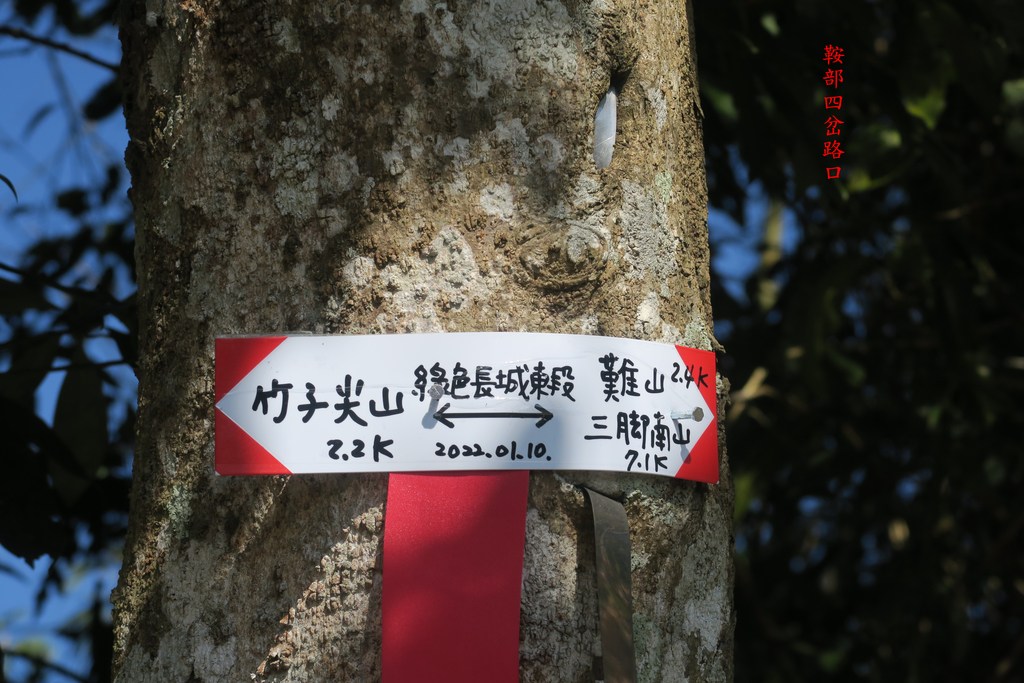 鞍部四岔路口
竹子尖山
2.2K
綠色長城東段
2022.01.10.
難山 2.4K
三腳南山
7.1K